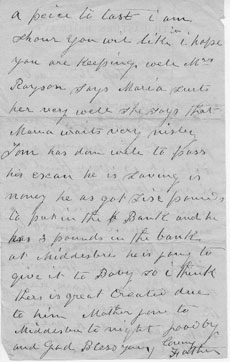 a peice to last i am
shour you wil like it i hope
you are keeping well Mrs
Rayson says Maria suits
her very well she says that
Maria waits very nisley
Tom has don well to pass
his exsam he is saving is
money he as got six pounds
to put in the Bank and he
has 3 pounds in the bank
at Middesbro he is going to
give it to Baby so i think
there is great Creadit due
to him Mother gon to
Middesbro to night good by
and God Bless you
Father